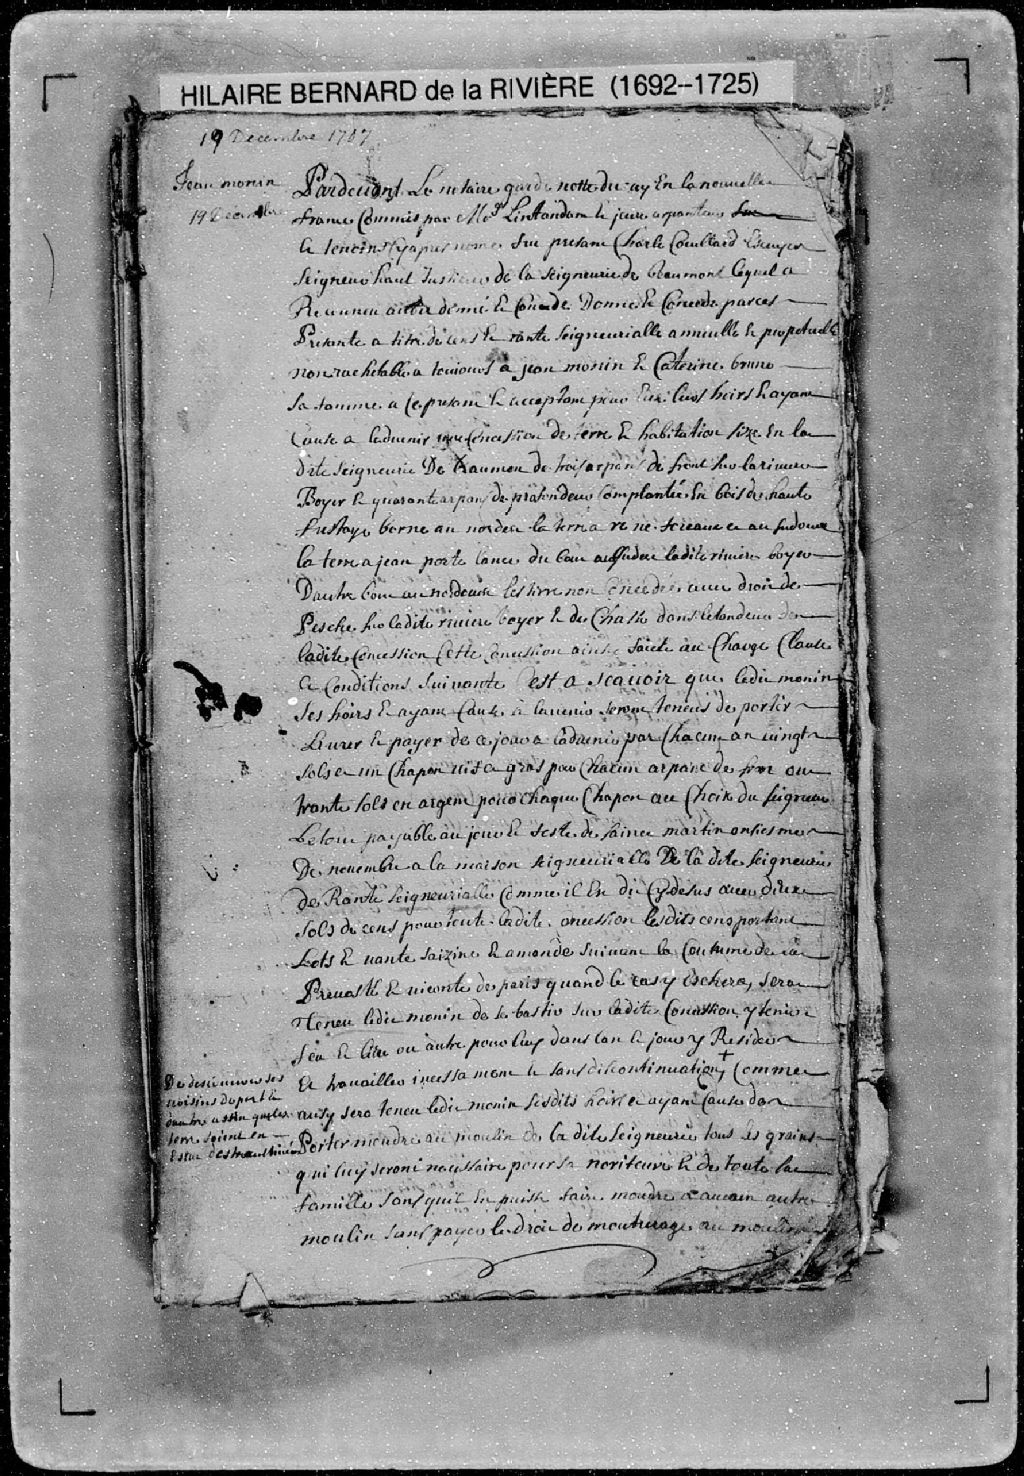 HILAIRE BERNARD de la RIVIÈRE (1692--1725)
19 Decembre 1707
Jean monin
19 Decembre
Pardevant Le notaire garde notte du Roy En la nouvelle
france Commis par Mgr Lintandam le jeune arpanteur
Le temoins Cyapres nomes fut presant Charle Couillard Escuyer
Seigneur haut Justicier de la Seigneurie de beaumont lequel a
Recounu avoir donné Et Concede Donne Et Concede par ces
Presente a titre de cens Et rante Seigneurialle annuelle Et perpetuelle
non rachetable a toujours a jean monin Et Caterine bruno
Sa famme a Ce presant Et acceptam pour Eux leurs hoirs Et ayam
Cause a ladvenir une Concession de terre Et habitation size En la
dite Seigneurie De Beaumon de trois arpans de front sur la riviere
Boyer Et quarante arpans de profondeur Complantée En bois de haute
fustaye borne au nordest la terre a rene au sudouest
la terre a jean porte lance du bou au sudest ladite riviere boyer
Dautre bou au nordouest les terre non Concedes avec droit de
Pesche sur ladite riviere boyer Et de Chasse dans letandeue de
ladite Concession Cette Concession ainsi faite au Charge Clause
Et Conditions Suivante Cest a scavoir que ledit monin
Ses hoirs Et ayam Cause a lavenir seront tenus de porter
Livrer Et payer de ce jour a ladvenir par Chacun an vingt
sols et un Chapon vif et gras pour Chacun arpans de fron ou
trante sols en argem pour chaque Chapon au Choix du Seigneur
Le tout payable au jour Et feste de Saint martin onsiesme
De novembre a la maison seigneurialle De la dite Seigneurie
de Rante Seigneurialle Comme il En dit Cy desus avec deux
Sols de cens pour toute ladite concession lesdits cens portant
Lots Et vante saizine Et amande suivant la Coutume de la
Prevosté Et viconte de paris quand le cas y Eschera, sera
Tenu ledit monin de se bastir sur ladite Concession, y tenir
feu Et lieu ou autre pour luy dans lan Et jour y Resider
Et travailler incessament Et sans discontinuation + Comme
ausy sera tenu ledit monin Sesdits hoirs et ayam Cause de
Porter moudre au moulin de la dite Seigneurie tous les grains
qui luy seront necessaire pour sa noriteure Et de toute sa
famille sans quil En puisse faire moudre a aucun autre
moulin sans payer le droit de mouturage au moulin
De desouvrir ses
voisins de part Et
dautre affin que les
terre soient en